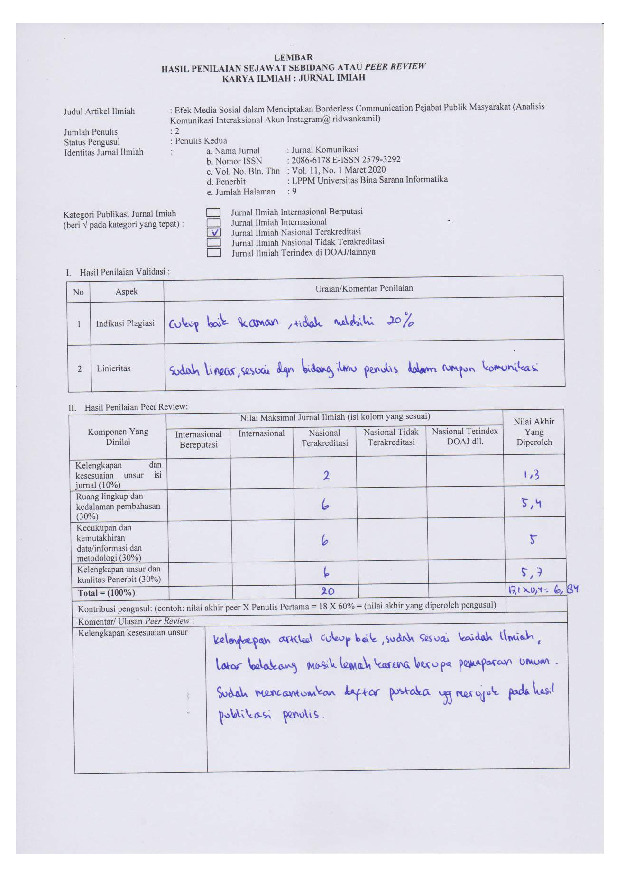 LEMBAR
HASIL PENILAIAN SEJAWAT SEBIDANG ATAU PEER REVIEW
KARYA ILMIAH : JURNAL IMIAH
Judul Artikel Ilmiah : Efek Media Sosial dalam Menciptakan Borderless Communication Pejabat Publik Masyarakat (Analisis
Komunikasi Interaksional Akun Instagram@ridwankamil)
Jumlah Penulis : 2
Status Pengusul : Penulis Kedua
Identitas Jurnal Ilmiah : a. Nama Jurnal : Jurnal Komunikasi
b. Nomor ISSN : 2086-6178 E-ISSN 2579-3292
c. Vol. No. Bln. Thn : Vol. 11, No. 1 Maret 2020
d. Penerbit : LPPM Universitas Bina Sarana Informatika
e. Jumlah Halaman : 9
Kategori Publikasi Jurnal Imiah
(beri √ pada kategori yang tepat) :
Jurnal Ilmiah Internasional Berputasi
Jurnal Ilmiah Internasional
√ Jurnal Ilmiah Nasional Terakreditasi
Jurnal Ilmiah Nasional Tidak Terakreditasi
Jurnal Ilmiah Terindex di DOAJ/lainnya
I. Hasil Penilaian Validasi :
No Aspek Uraian/Komentar Penilaian
1 Indikasi Plagiasi cukup baik &aman, tidak melebihi 20%
2 Linieritas sudah linear, sesuai dgn bidang ilmu penulis dalam rumpun komunikasi
II. Hasil Penilaian Peer Review:
Komponen Yang
Dinilai
Nilai Maksimal Jurnal Ilmiah (isi kolom yang sesuai)
Internasional
Bereputasi
Internasional
Nasional
Terakreditasi
Nasional Tidak
Terakreditasi
Nasional Terindex
DOAJ dll.
Nilai Akhir
Yang
Diperoleh
Kelengkapan dan
kesesuaian unsur isi
jurnal (10%)
2 1,3
Ruang lingkup dan
kedalaman pembahasan
(30%)
6 5,4
Kecukupan dan
kemutakhiran
data/informasi dan
metodologi (30%)
6 5
Kelengkapan unsur dan
kualitas Penerbit (30%)
6 5,7
Total = (100%) 20 17,1 x 0,4 = 6,84
Kontribusi pengusul: (contoh: nilai akhir peer X Penulis Pertama = 18 X 60% = (nilai akhir yang diperoleh pengusul)
Komentar/ Ulasan Peer Review :
Kelengkapan kesesuaian unsur
kelengkapan artikel cukup baik, sudah sesuai kaidah ilmiah,
latar belakang masih lemah karena berupa pemaparan umum.
Sudah mencantumkan daftar pustaka yg merujuk pada hasil
publikasi penulis.